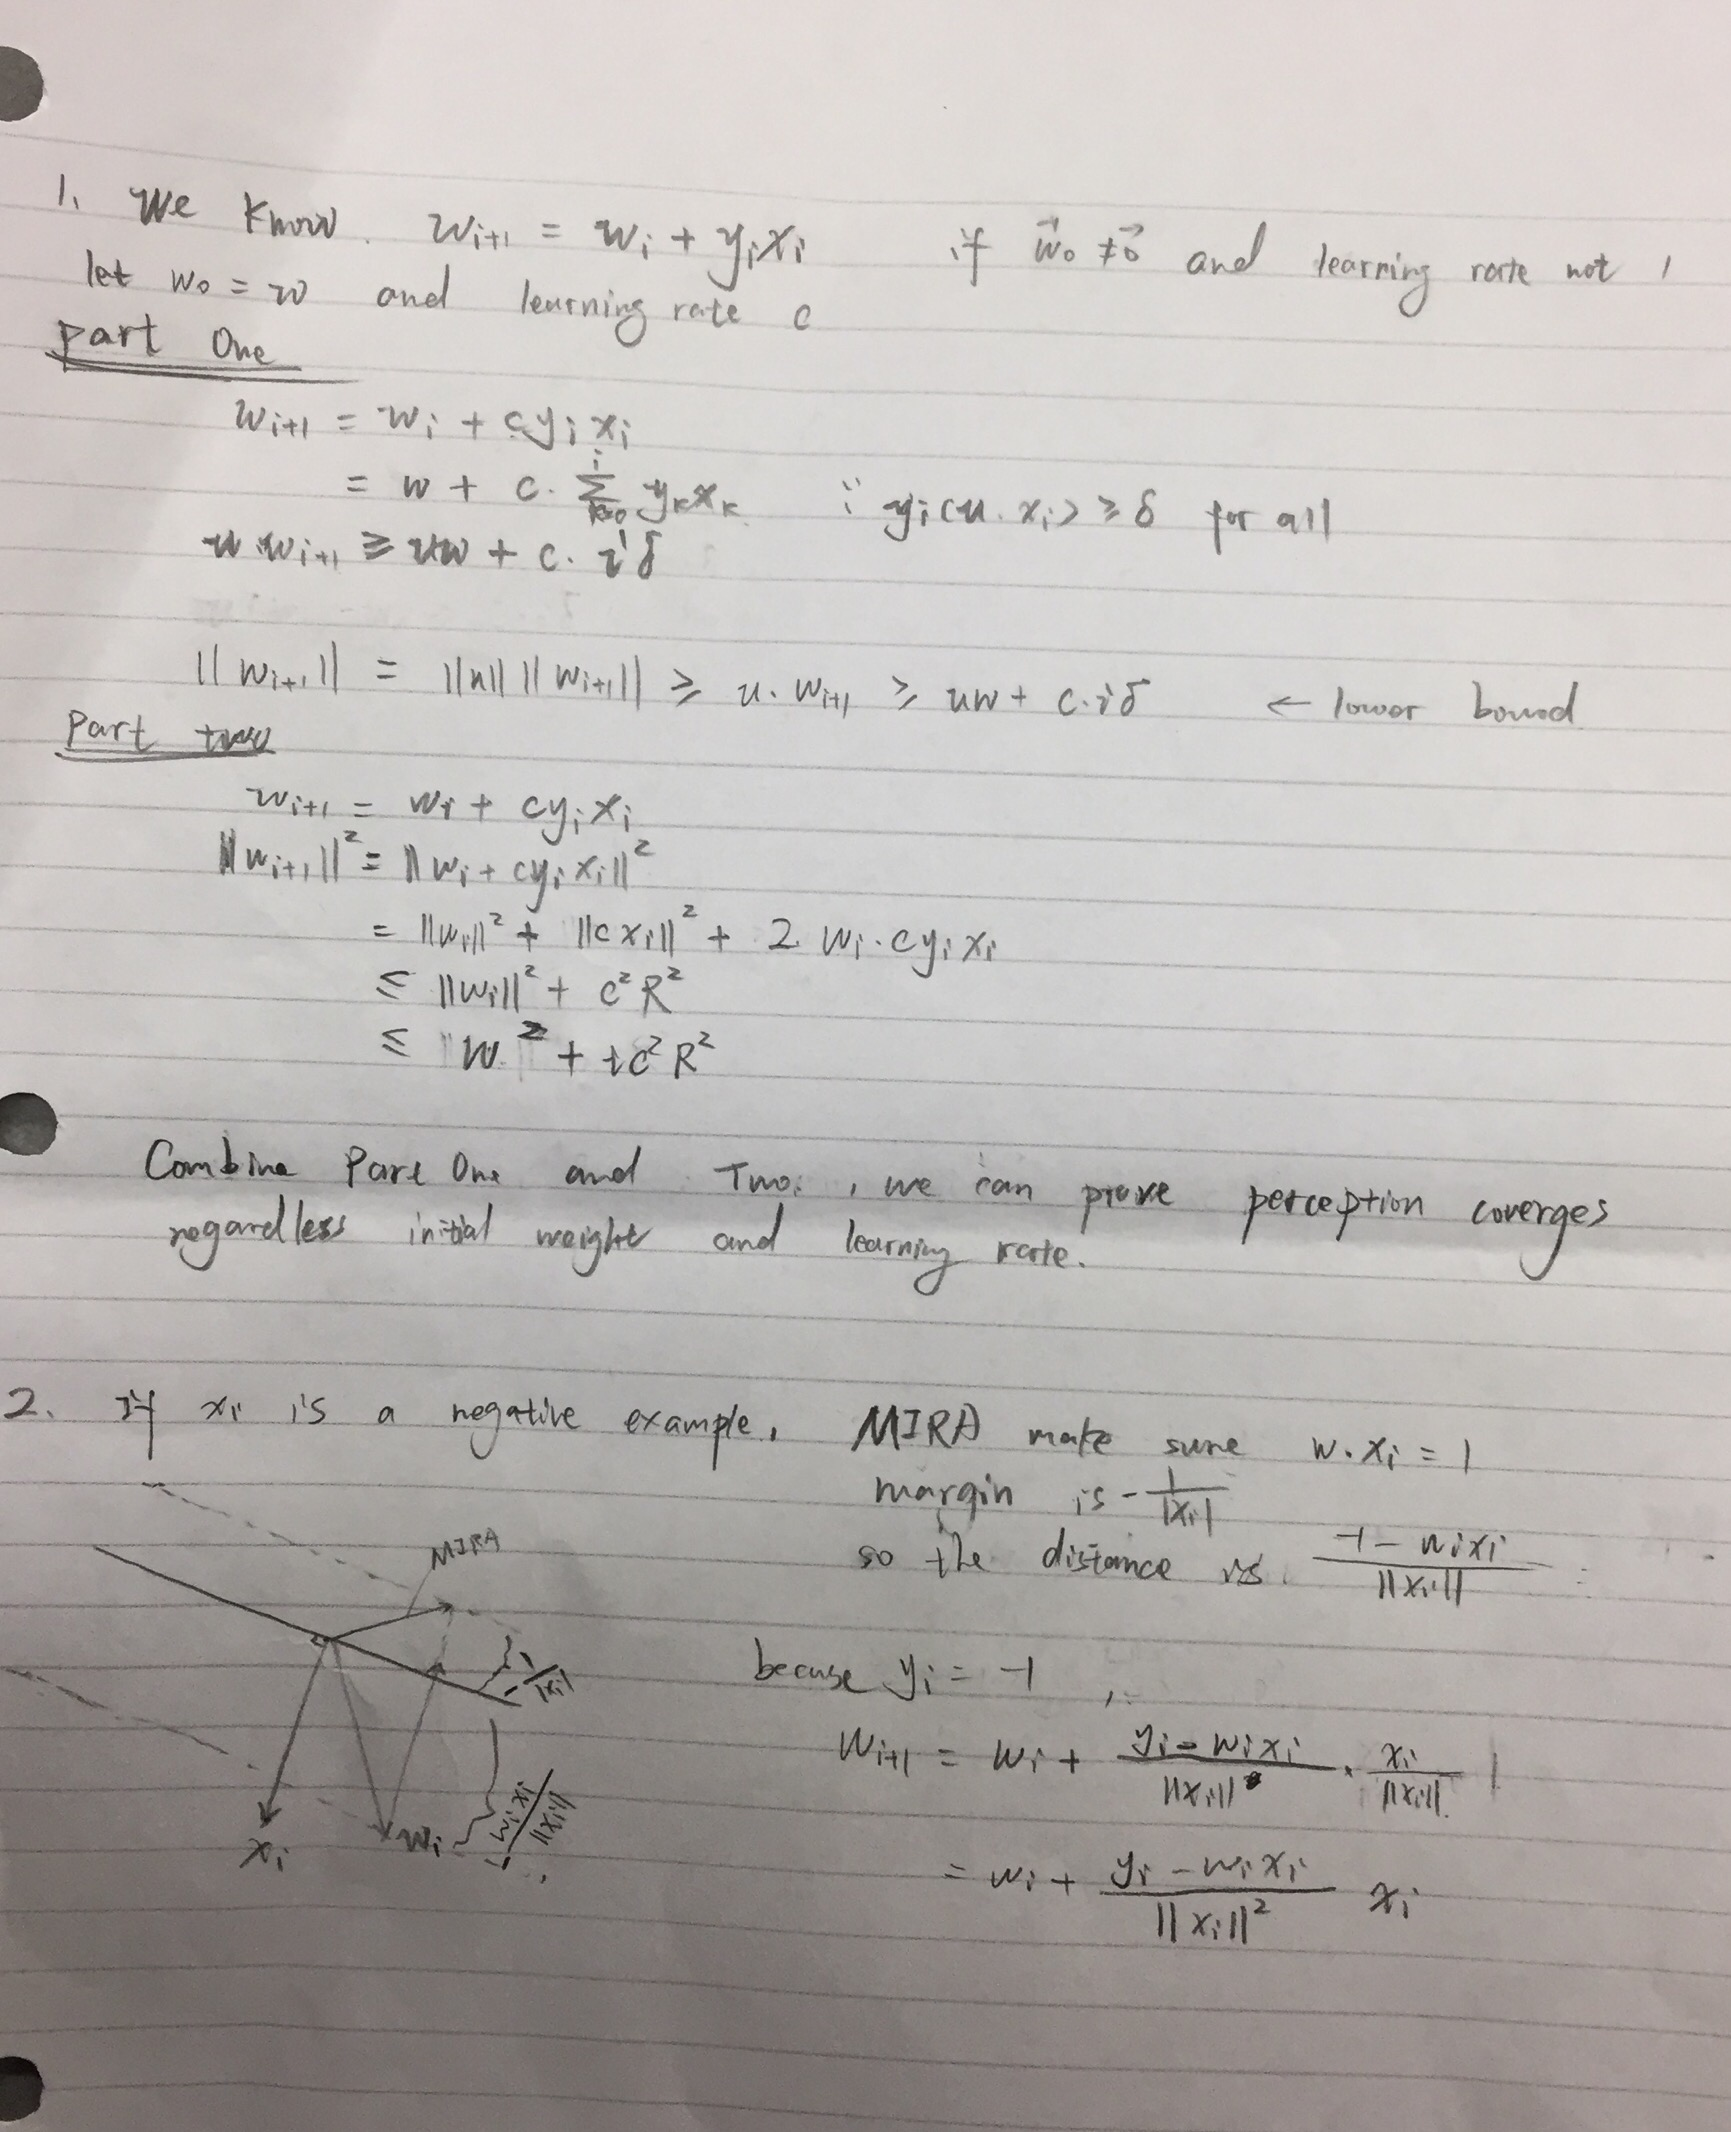 1. We know. w_{i+1} = w_i + y_i x_i if \vec{w}_0 ≠ \vec{0} and learning rate not 1
let w_0 = w and learning rate c
part One
w_{i+1} = w_i + c y_i x_i
= w + c · \sum_{k=0}^{i} y_k x_k ∵ y_i (u · x_i) ≥ δ for all
u · w_{i+1} ≥ uw + c · i δ
||w_{i+1}|| = ||u|| ||w_{i+1}|| ≥ u · w_{i+1} ≥ uw + c · i δ ← lower bound
Part two
w_{i+1} = w_i + c y_i x_i
||w_{i+1}||^2 = ||w_i + c y_i x_i||^2
= ||w_i||^2 + ||c x_i||^2 + 2 w_i · c y_i x_i
≤ ||w_i||^2 + c^2 R^2
≤ w^2 + i c^2 R^2
Combine Part One and Two, we can prove perception coverges
regardless initial weight and learning rate.
2. If x_i is a negative example, MIRA make sure w · x_i = 1
margin is - \frac{1}{|x_i|}
so the distance is \frac{-1 - w_i x_i}{||x_i||}
MIRA
- \frac{1}{|x_i|}
becuse y_i = -1
w_{i+1} = w_i + \frac{y_i - w_i x_i}{||x_i||} · \frac{x_i}{||x_i||}
x_i w_i - \frac{w_i x_i}{||x_i||}
= w_i + \frac{y_i - w_i x_i}{||x_i||^2} x_i